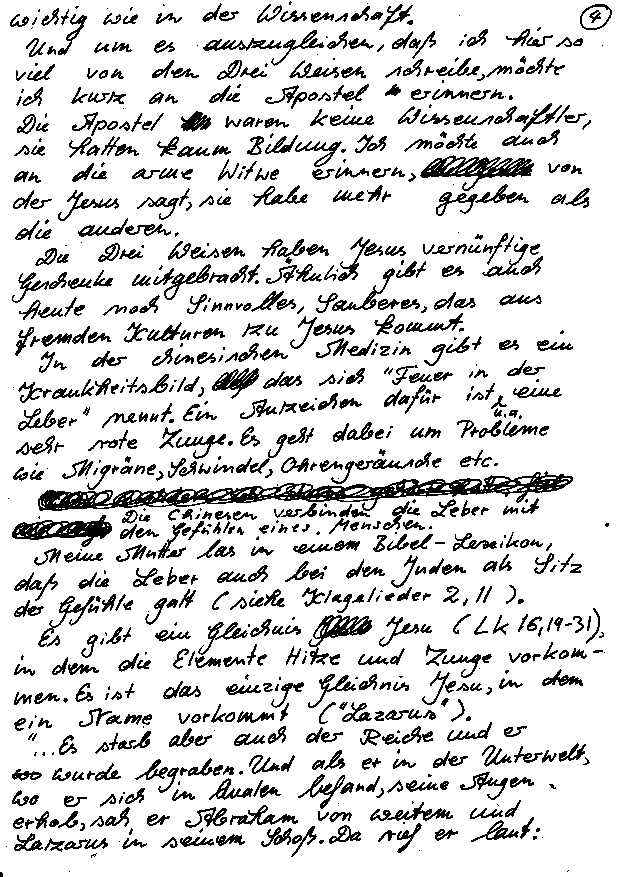 wichtig wie in der Wissenschaft. 4
Und um es auszugleichen, daß ich hier so
viel von den Drei Weisen schreibe, möchte
ich kurz an die Apostel erinnern.
Die Apostel waren keine Wissenschaftler,
sie hatten kaum Bildung. Ich möchte auch
an die arme Witwe erinnern, von
der Jesus sagt, sie habe mehr gegeben als
die anderen.
Die Drei Weisen haben Jesus vernünftige
Geschenke mitgebracht. Ähnlich gibt es auch
heute noch Sinnvolles, Sauberes, das aus
fremden Kulturen zu Jesus kommt.
In der chinesischen Medizin gibt es ein
Krankheitsbild, das sich "Feuer in der
Leber" nennt. Ein Anzeichen dafür ist eine
u.a.
sehr rote Zunge. Es geht dabei um Probleme
wie Migräne, Schwindel, Ohrengeräusche etc.
Die Chinesen verbinden die Leber mit
den Gefühlen eines Menschen.
Meine Mutter las in einem Bibel-Lexikon,
daß die Leber auch bei den Juden als Sitz
der Gefühle galt (siehe Klagelieder 2,11).
Es gibt ein Gleichnis Jesu (Lk 16,19-31),
in dem die Elemente Hitze und Zunge vorkom-
men. Es ist das einzige Gleichnis Jesu, in dem
ein Name vorkommt ("Lazarus").
"...Es starb aber auch der Reiche und er
wurde begraben. Und als er in der Unterwelt,
wo er sich in Qualen befand, seine Augen
erhob, sah er Abraham von weitem und
Lazarus in seinem Schoß. Da rief er laut: